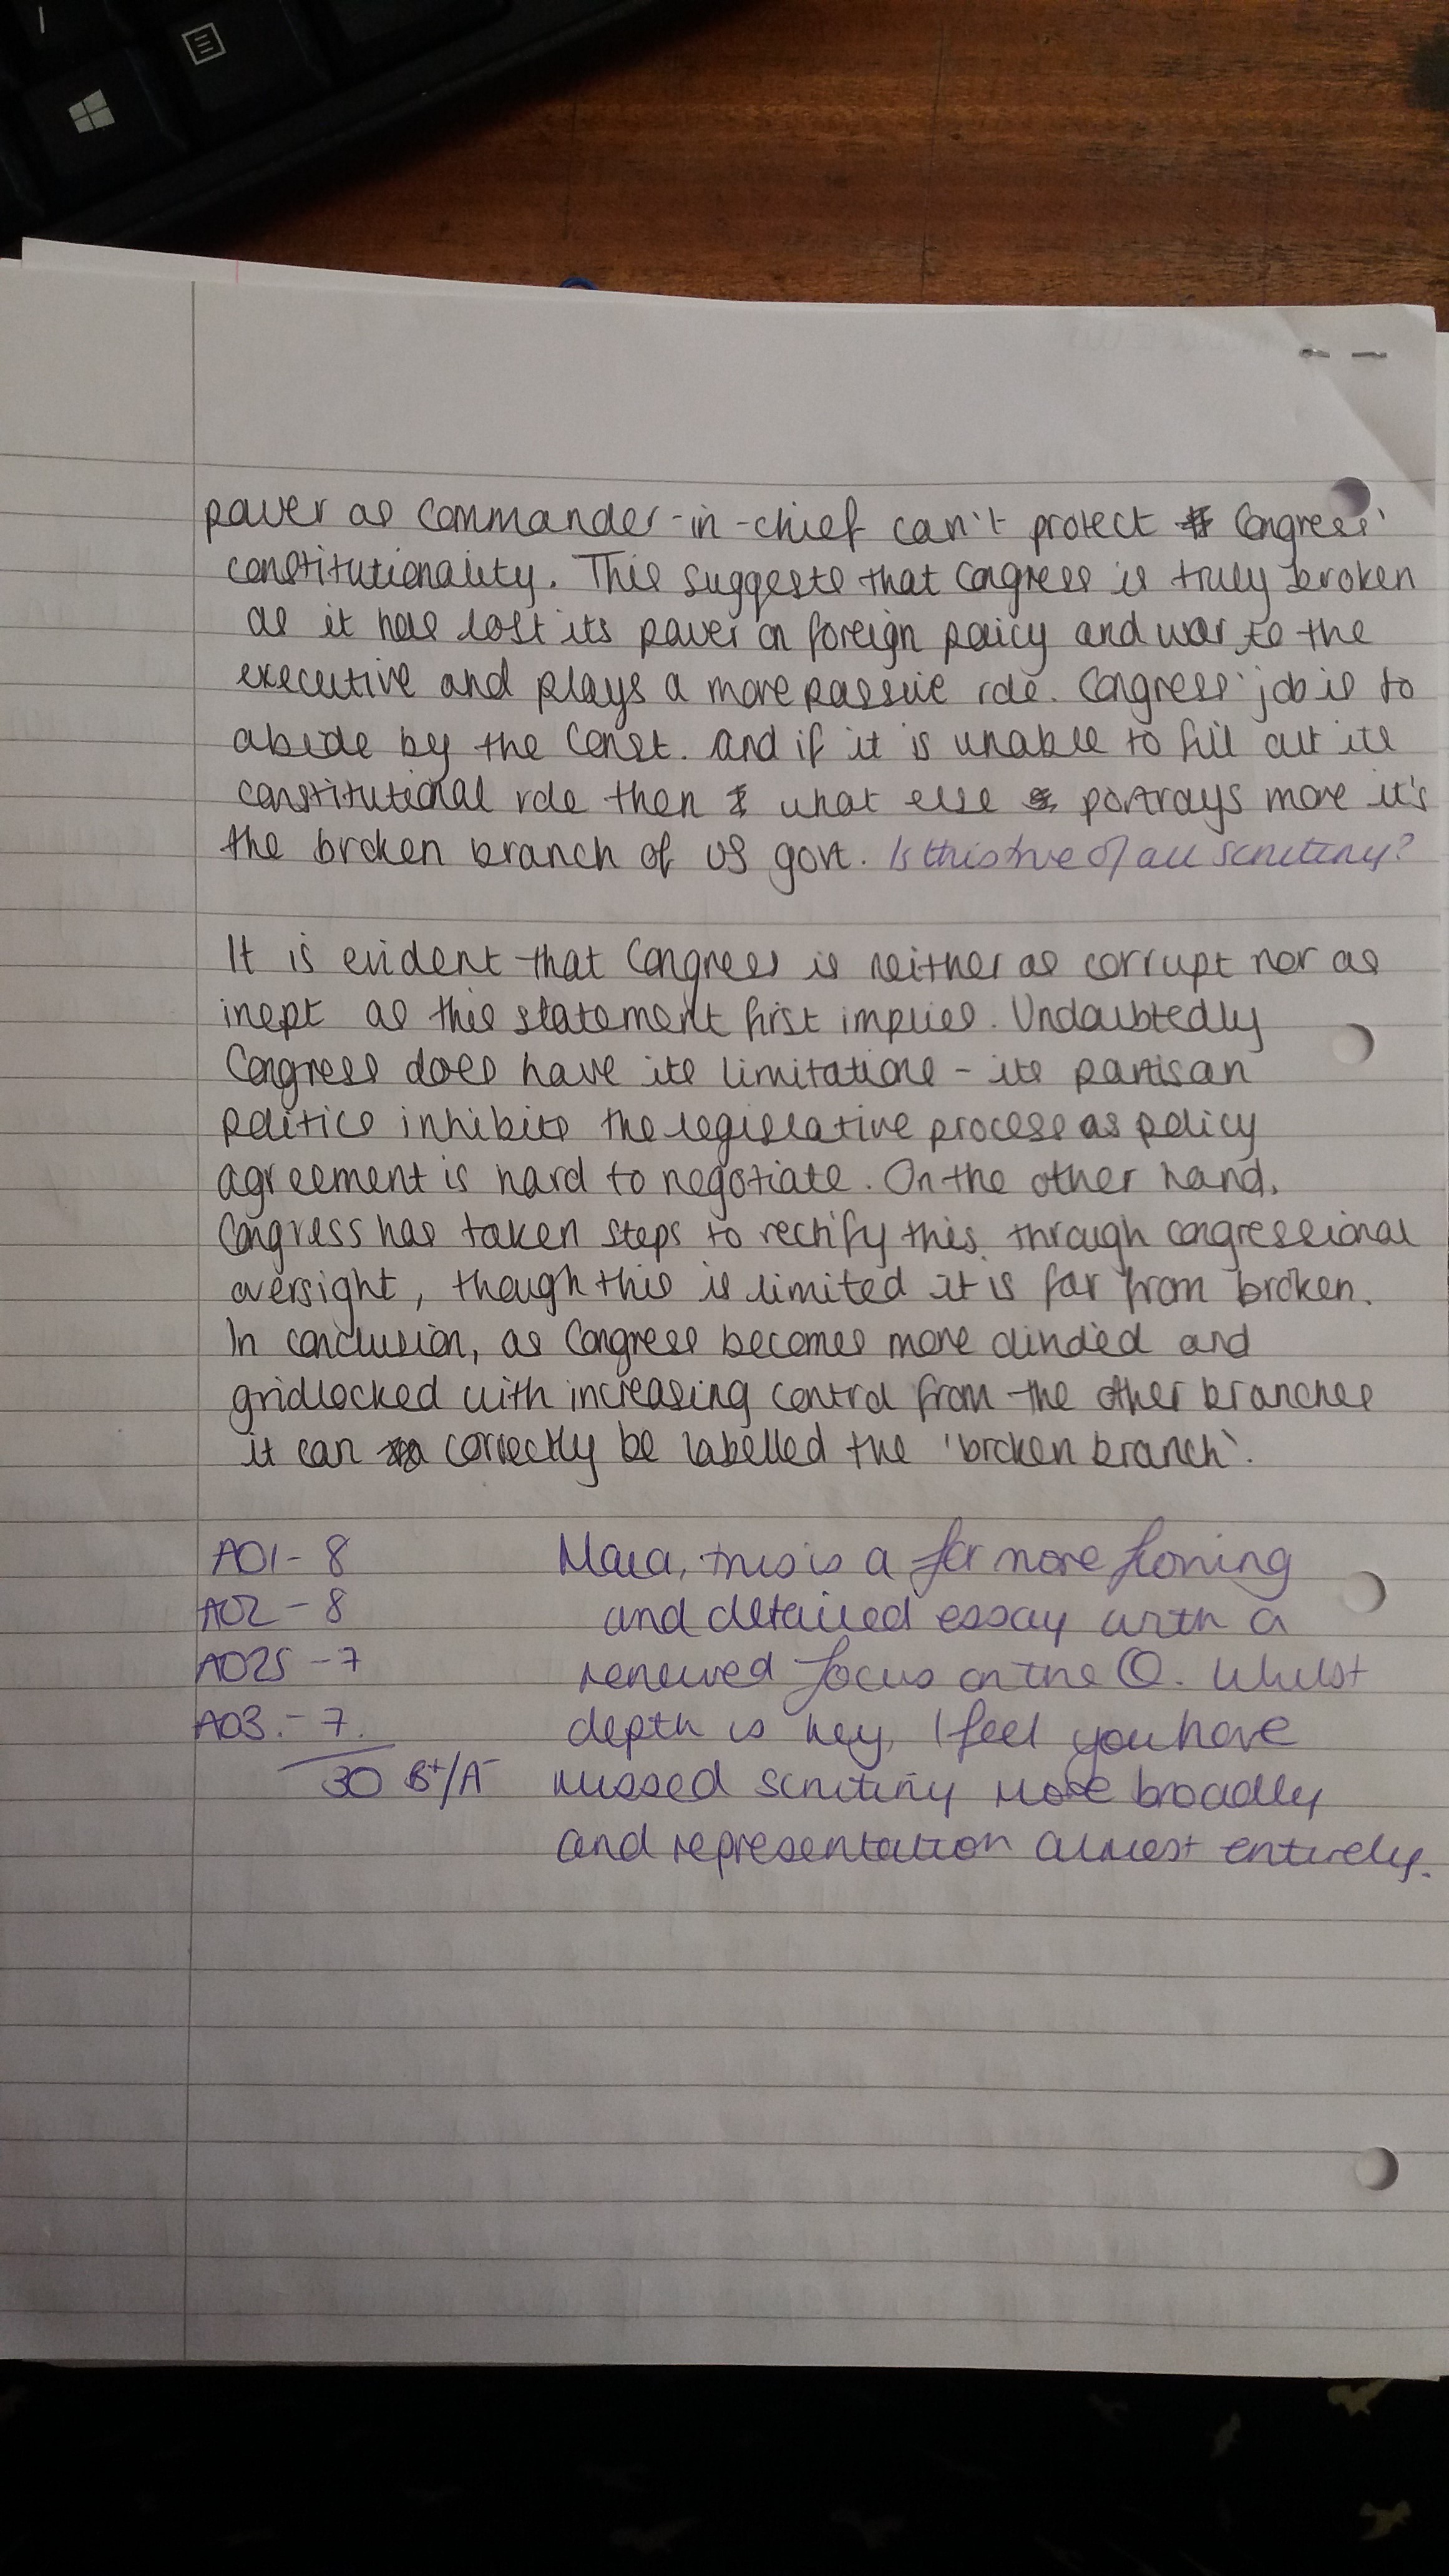 power as commander-in-chief can't protect Congress'
constitutionality. This suggests that Congress is truly broken
as it has lost its power on foreign policy and war to the
executive and plays a more passive role. Congress' job is to
abide by the Const. and if it is unable to fill out its
constitutional role then what else portrays more it's
the broken branch of US govt. Is this true of all scrutiny?
It is evident that Congress is neither as corrupt nor as
inept as this statement first implies. Undoubtedly
Congress does have its limitations - its partisan
politics inhibits the legislative process as policy
agreement is hard to negotiate. On the other hand,
Congress has taken steps to rectify this, through congressional
oversight, though this is limited it is far from broken.
In conclusion, as Congress becomes more divided and
gridlocked with increasing control from the other branches
it can correctly be labelled the 'broken branch'.
AO1 - 8
AO2 - 8
AO2S - 7
AO3. - 7.
30 B+/A-
this is a far more
and detailed essay with a
renewed focus on the Q. Whilst
depth is key, I feel you have
missed scrutiny more broadly
and representation almost entirely.